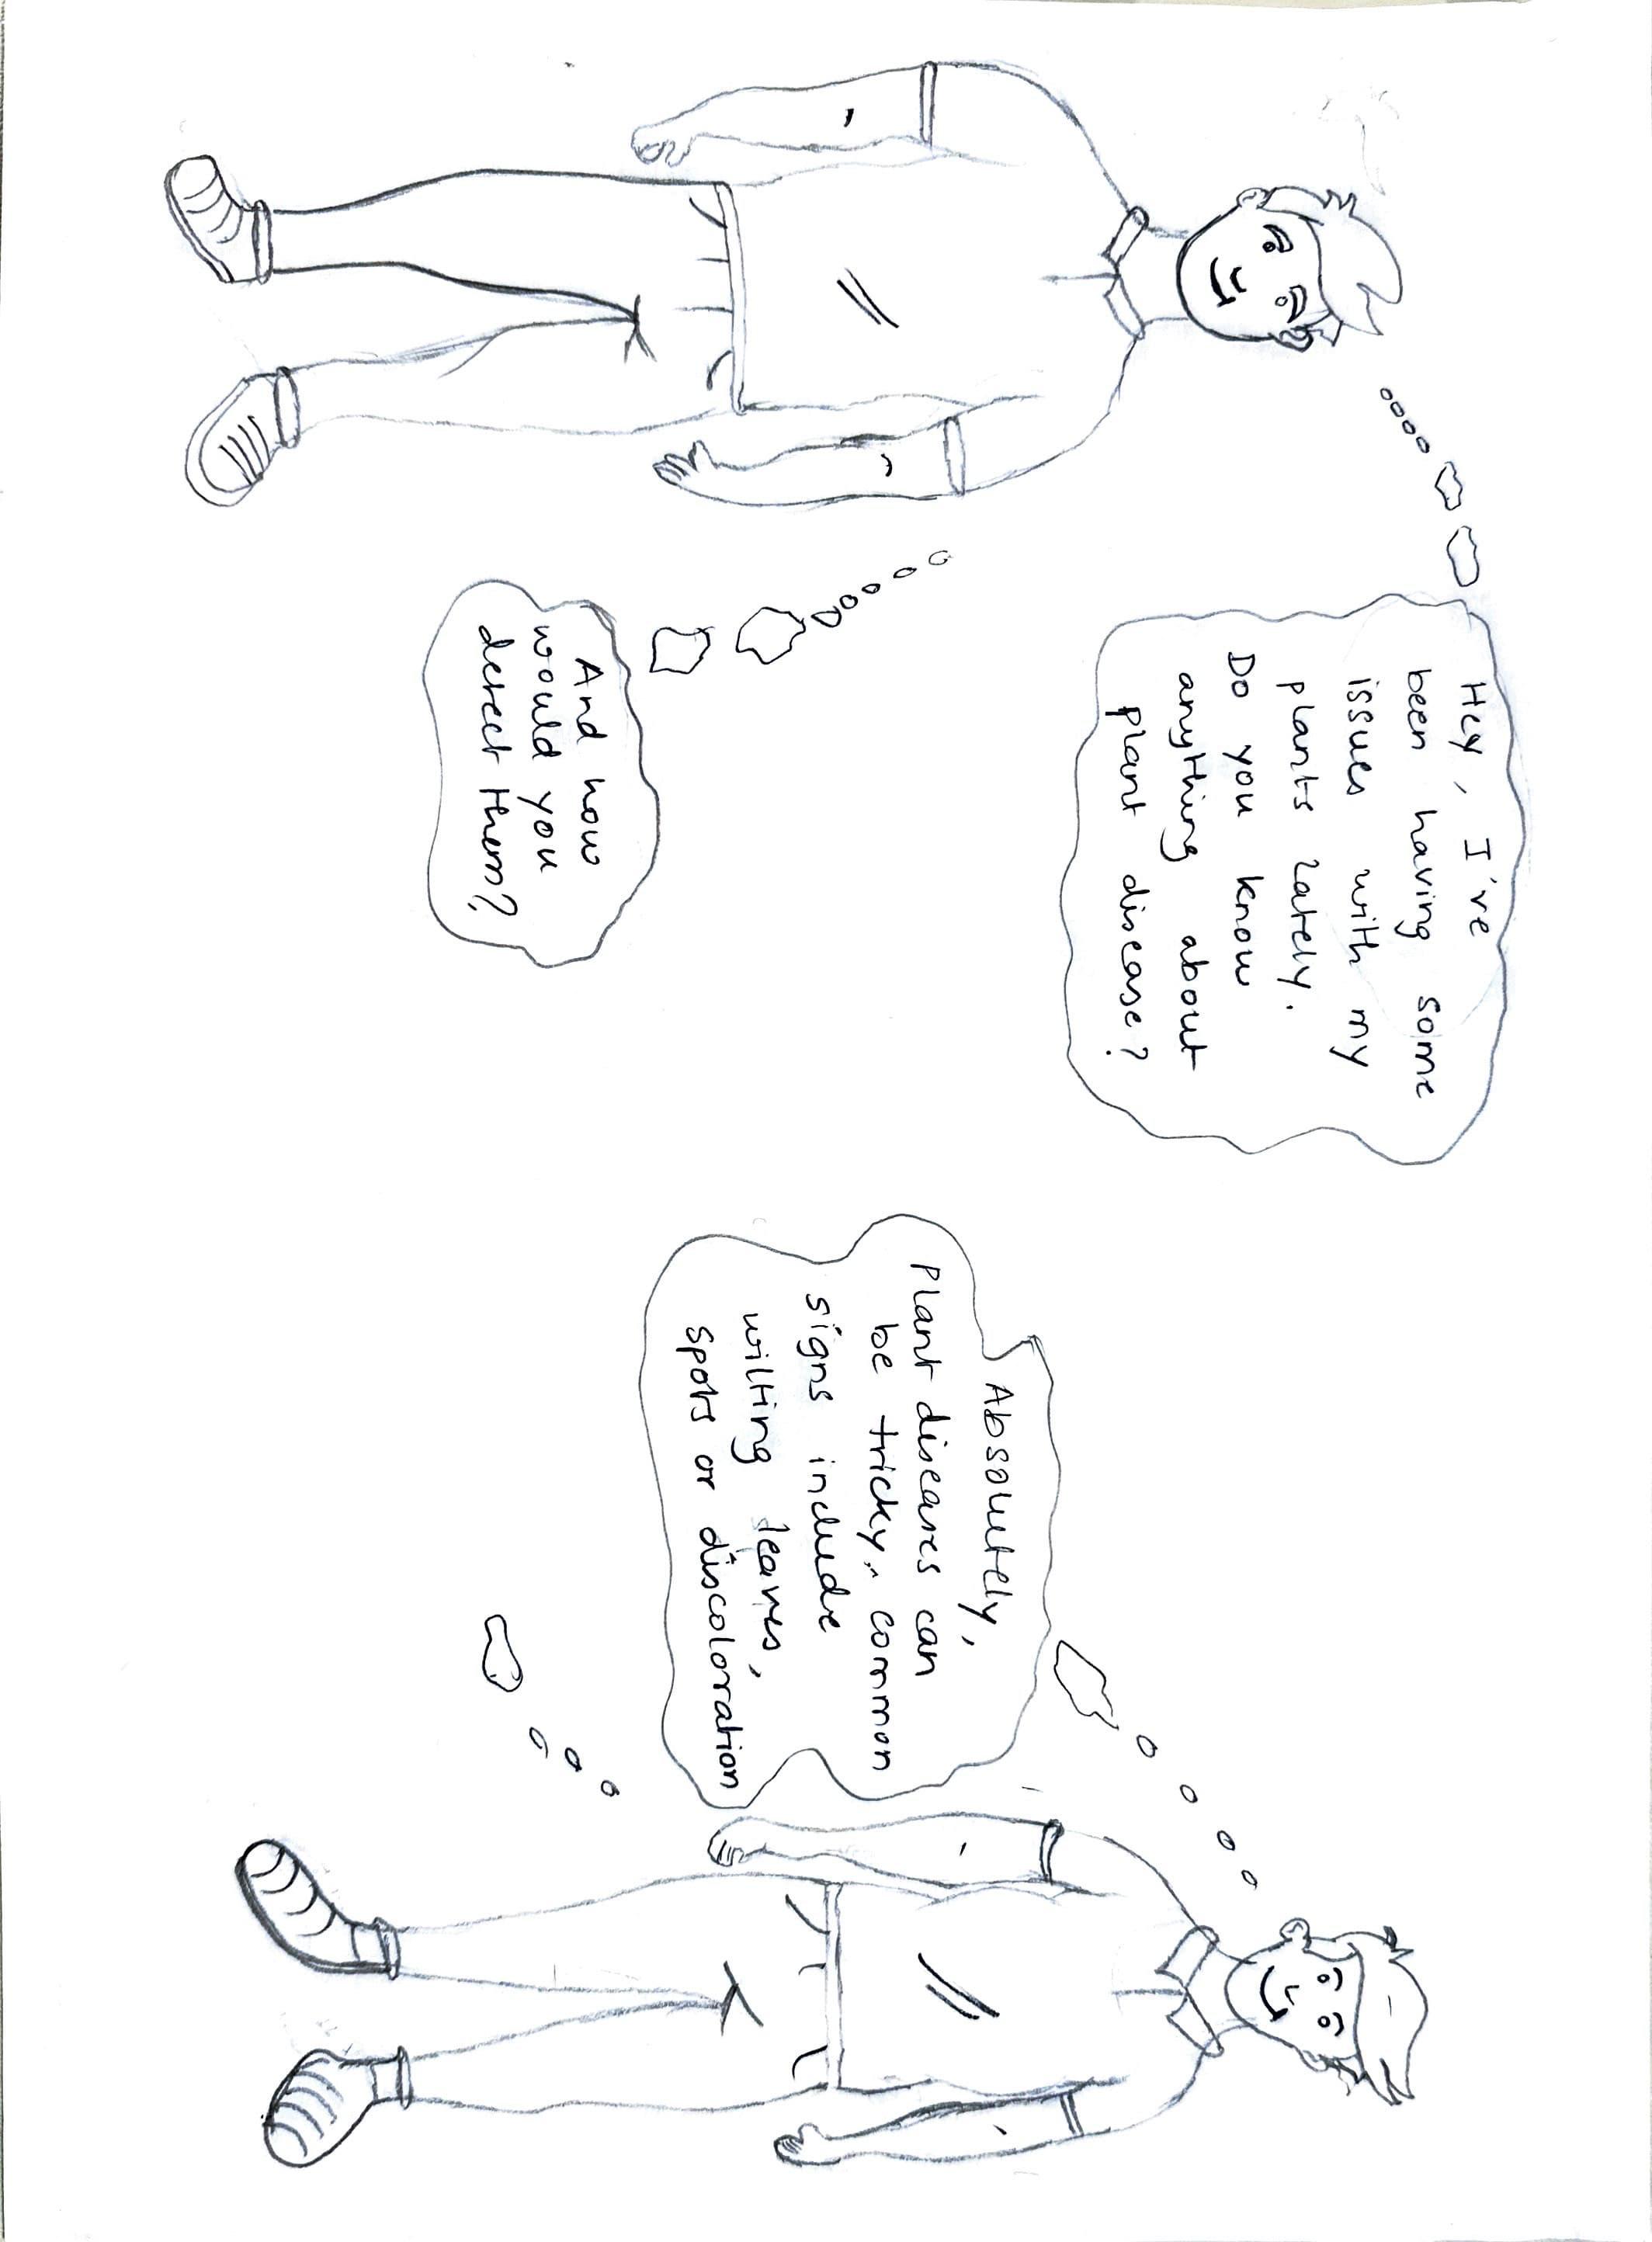 Hey, I've
been having some
issues with my
plants lately.
Do you know
anything about
plant disease?
Absolutely,
Plant diseases can
be tricky. common
signs include
wilting leaves,
spots or discoloration
And how
would you
detect them?